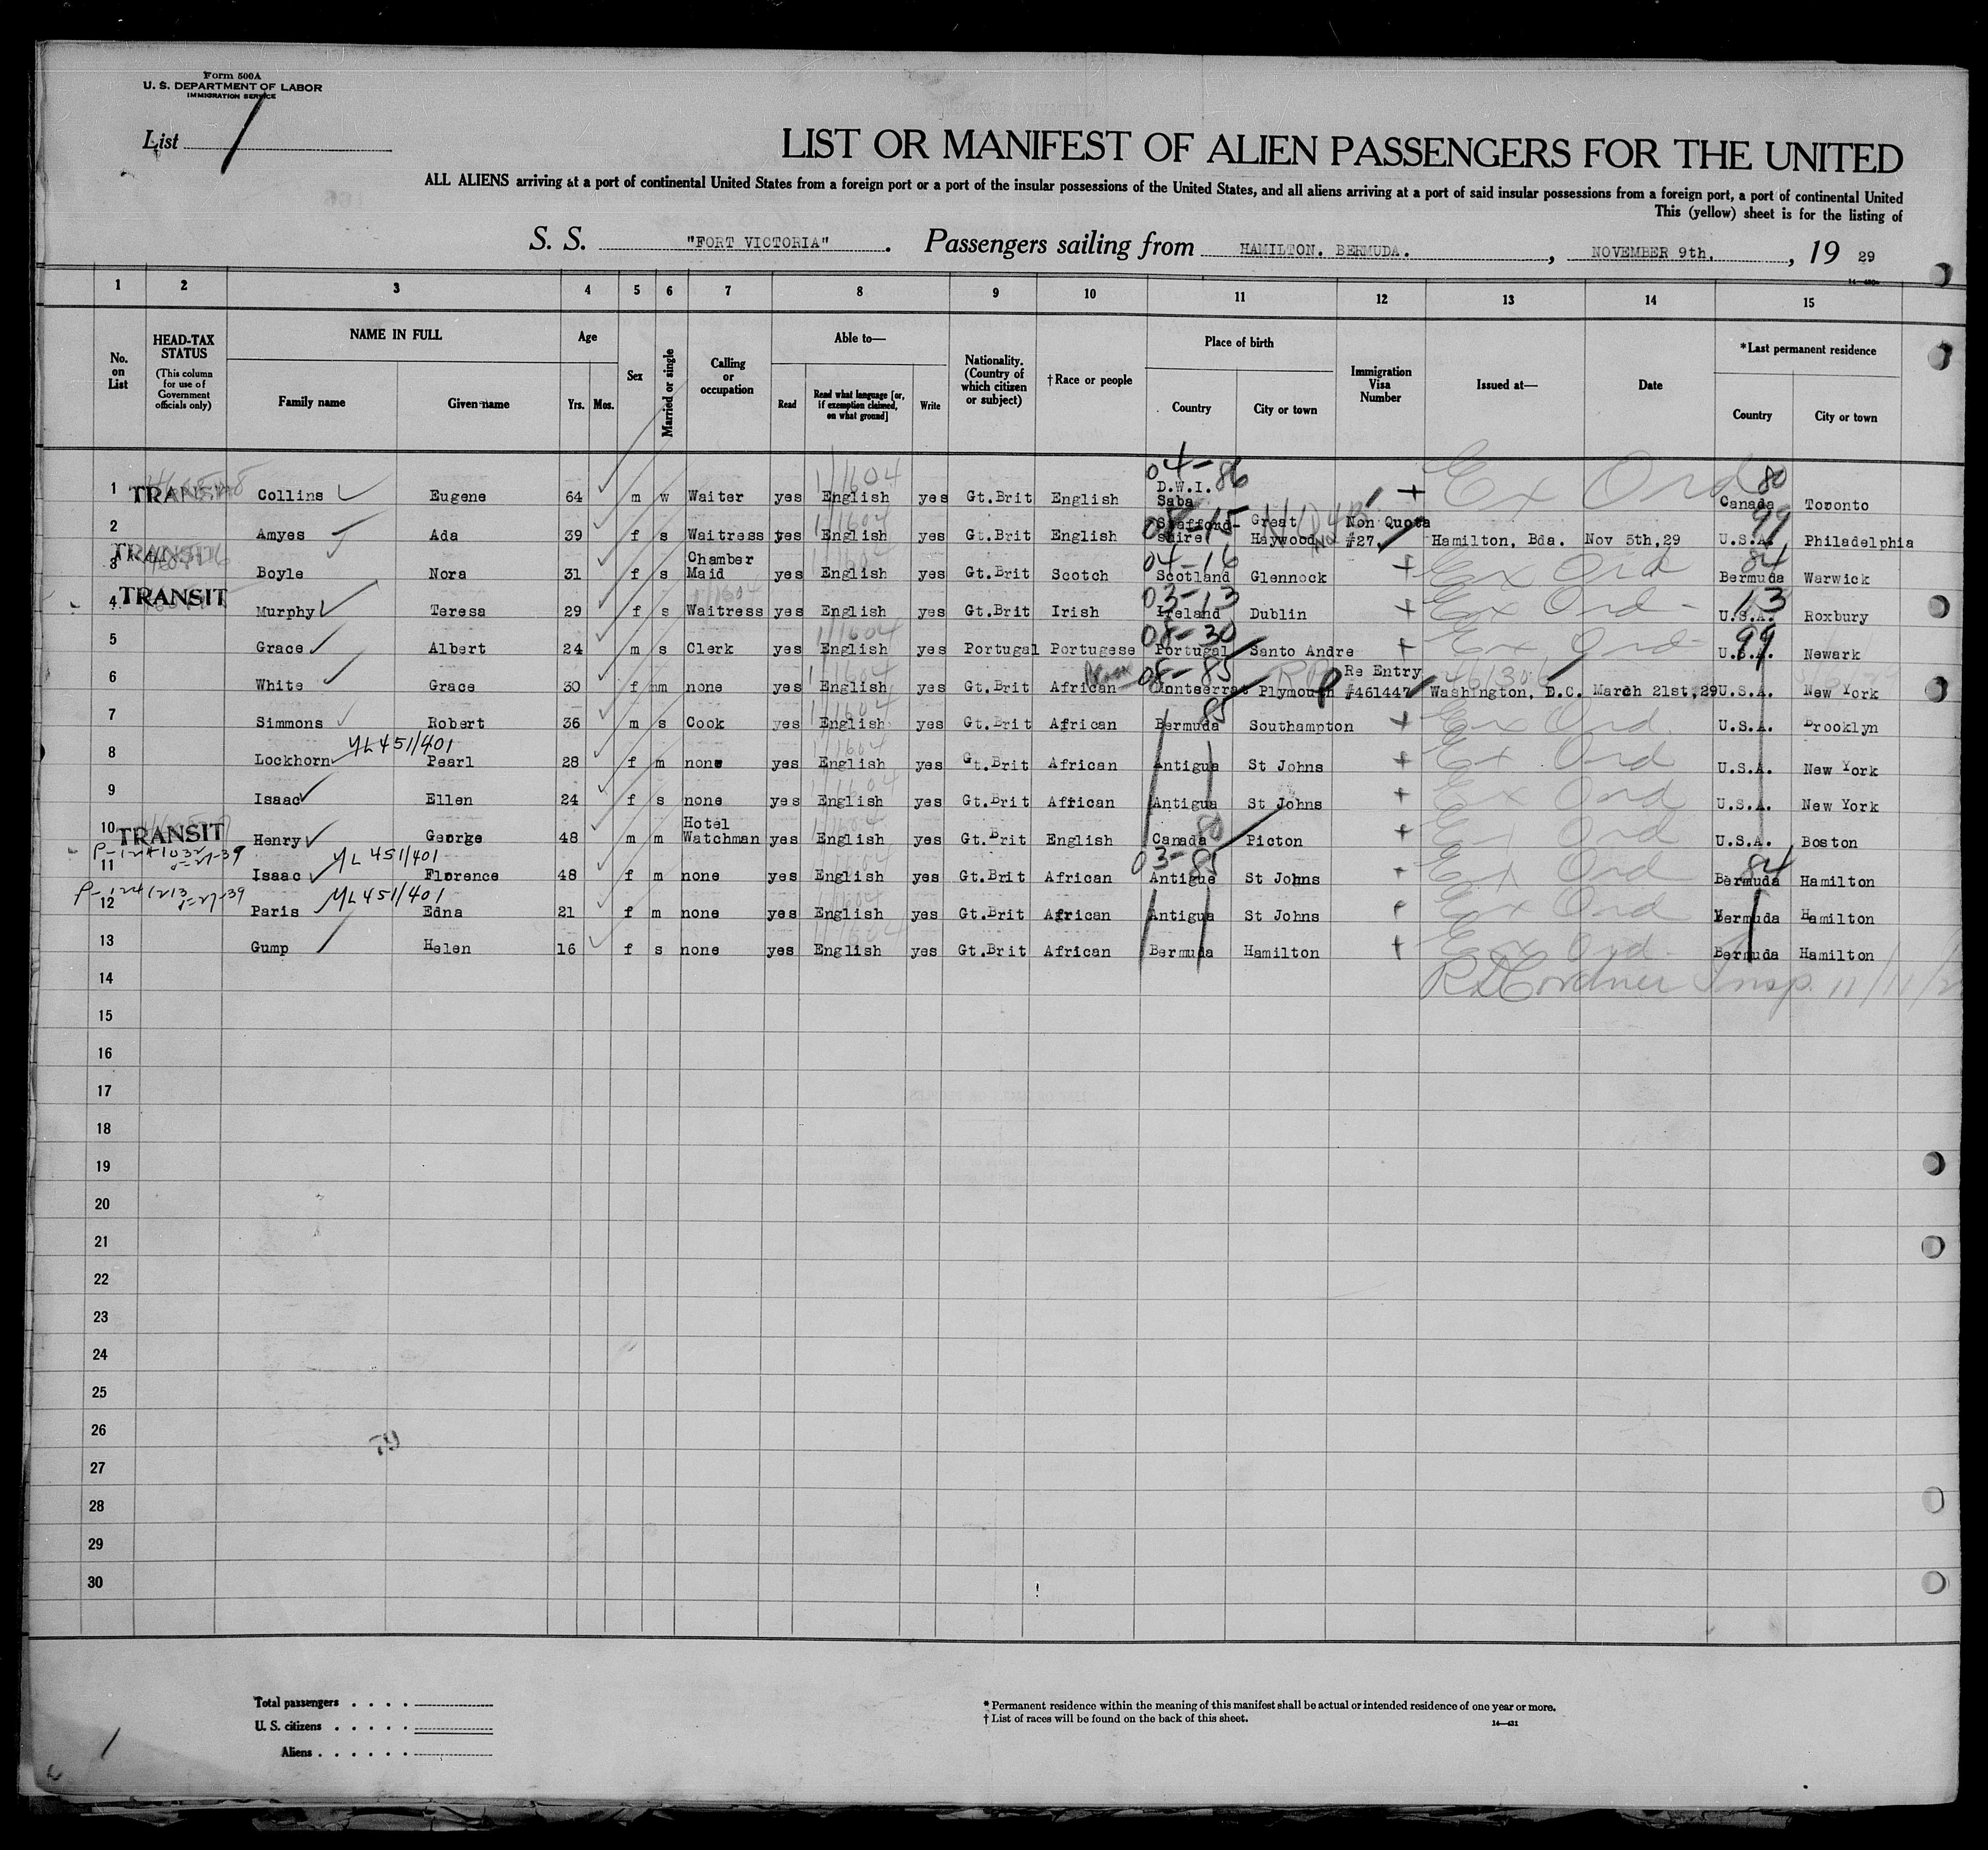 Form 500A
U. S. DEPARTMENT OF LABOR
IMMIGRATION SERVICE
List 1
LIST OR MANIFEST OF ALIEN PASSENGERS FOR THE UNITED
ALL ALIENS arriving at a port of continental United States from a foreign port or a port of the insular possessions of the United States, and all aliens arriving at a port of said insular possessions from a foreign port, a port of continental United
This (yellow) sheet is for the listing of
S. S. "FORT VICTORIA". Passengers sailing from HAMILTON. BERMUDA. , NOVEMBER 9th. , 19 29
1 2 3 4 5 6 7 8 9 10 11 12 13 14 15
No. on List
HEAD-TAX STATUS (This column for use of Government officials only)
NAME IN FULL
Family name
Given name
Age
Yrs. Mos.
Sex
Married or single
Calling or occupation
Able to—
Read
Read what language [or, if exemption claimed, on what ground]
Write
Nationality. (Country of which citizen or subject)
†Race or people
Place of birth
Country
City or town
Immigration Visa Number
Issued at—
Date
*Last permanent residence
Country
City or town
1 TRANSIT Collins Eugene 64 m w Waiter yes English yes Gt.Brit English 04-86 D.W.I. Saba Ex Ord 80 Canada Toronto
2 Amyes Ada 39 f s Waitress yes English yes Gt.Brit English 08-15 Stafford-shire Great Haywood Non Quota #27. Hamilton, Bda. Nov 5th,29 99 U.S.A. Philadelphia
3 TRANSIT Boyle Nora 31 f s Chamber Maid yes English yes Gt.Brit Scotch 04-16 Scotland Glennock Ex Ord 84 Bermuda Warwick
4 TRANSIT Murphy Teresa 29 f s Waitress yes English yes Gt.Brit Irish 03-13 Ireland Dublin Ex Ord - 13 U.S.A. Roxbury
5 Grace Albert 24 m s Clerk yes English yes Portugal Portugese 08-30 Portugal Santo Andre Ex Ord 99 U.S.A. Newark
6 White Grace 30 f m none yes English yes Gt.Brit African 08-85 Montserrat Plymouth Re Entry #461447 Washington, D.C. March 21st,29 U.S.A. New York
7 Simmons Robert 36 m s Cook yes English yes Gt.Brit African 85 Bermuda Southampton Ex Ord. U.S.A. Brooklyn
8 Lockhorn YL 451/401 Pearl 28 f m none yes English yes Gt.Brit African Antigua St Johns Ex Ord U.S.A. New York
9 Isaac Ellen 24 f s none yes English yes Gt.Brit African Antigua St Johns Ex Ord U.S.A. New York
10 TRANSIT Henry George 48 m m Hotel Watchman yes English yes Gt.Brit English 80 Canada Picton Ex Ord U.S.A. Boston
11 Isaac YL 451/401 Florence 48 f m none yes English yes Gt.Brit African 03-85 Antigua St Johns Ex Ord 84 Bermuda Hamilton
12 Paris YL 451/401 Edna 21 f m none yes English yes Gt.Brit African Antigua St Johns Ex Ord Bermuda Hamilton
13 Gump Helen 16 f s none yes English yes Gt.Brit African Bermuda Hamilton Ex Ord. Bermuda Hamilton
14 Insp. 11/11/
15
16
17
18
19
20
21
22
23
24
25
26
27
28
29
30
Total passengers . . . .
U. S. citizens . . . . .
Aliens . . . . . .
* Permanent residence within the meaning of this manifest shall be actual or intended residence of one year or more.
† List of races will be found on the back of this sheet.
14—431
1